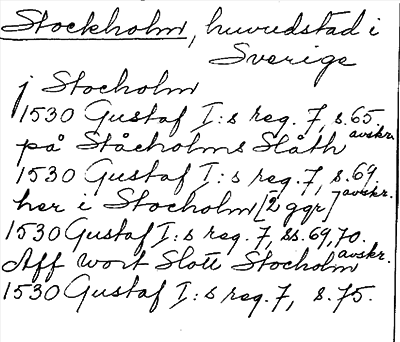 Stockholm, huvudstad i
Sverige
j Stocholm
1530 Gustaf I:s reg. 7, s. 65
avskr.
på Ståcholms Slåth
1530 Gustaf I:s reg. 7, s. 69.
avskr.
her i Stocholm [2 ggr]
1530 Gustaf I:s reg. 7, ss. 69, 70.
avskr.
Aff wort Slott Stocholm
1530 Gustaf I:s reg. 7, s. 75.